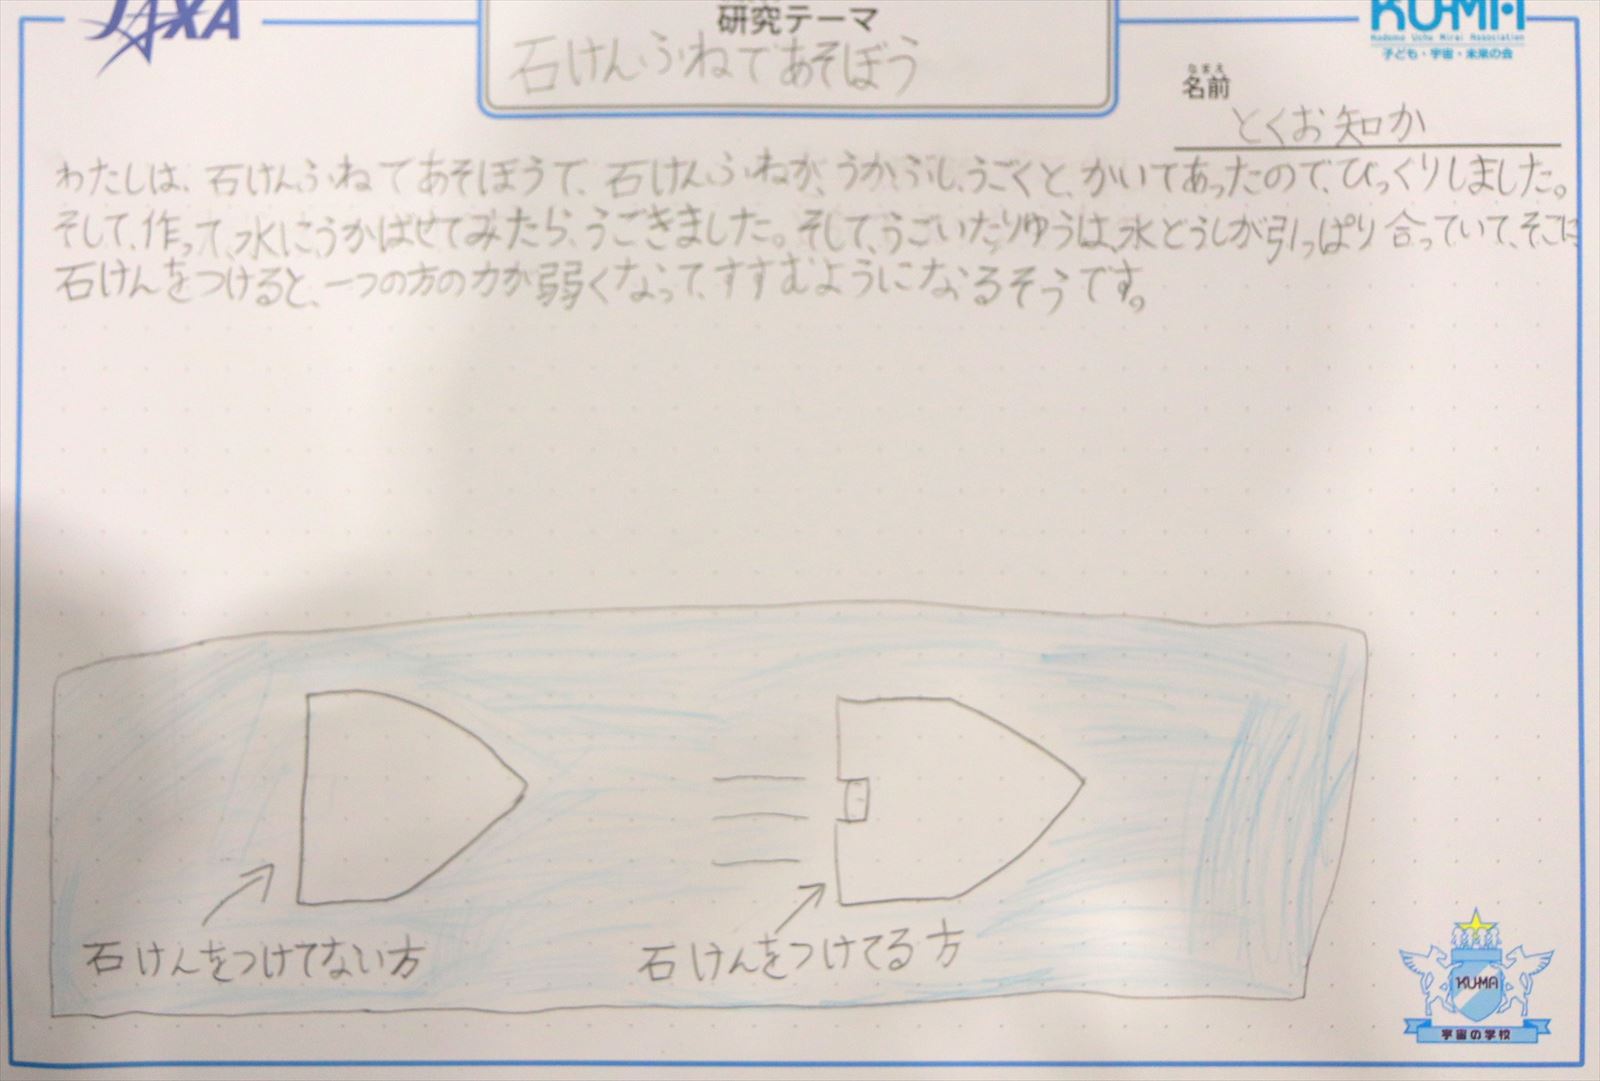 JAXA
研究テーマ
石けんふねであそぼう
KU-MA
Kodomo Uchu Mirai Association
子ども・宇宙・未来の会
なまえ
名前
とくお知か
わたしは、石けんふねであそぼうで、石けんふねが、うかぶし、うごくと、かいてあったので、びっくりしました。
そして、作って、水にうかばせてみたら、うごきました。そして、うごいたりゆうは、水どうしが引っぱり合っていて、そこに
石けんをつけると、一つの方の力が弱くなって、すすむようになるそうです。
石けんをつけてない方
石けんをつけてる方
KUMA
宇宙の学校